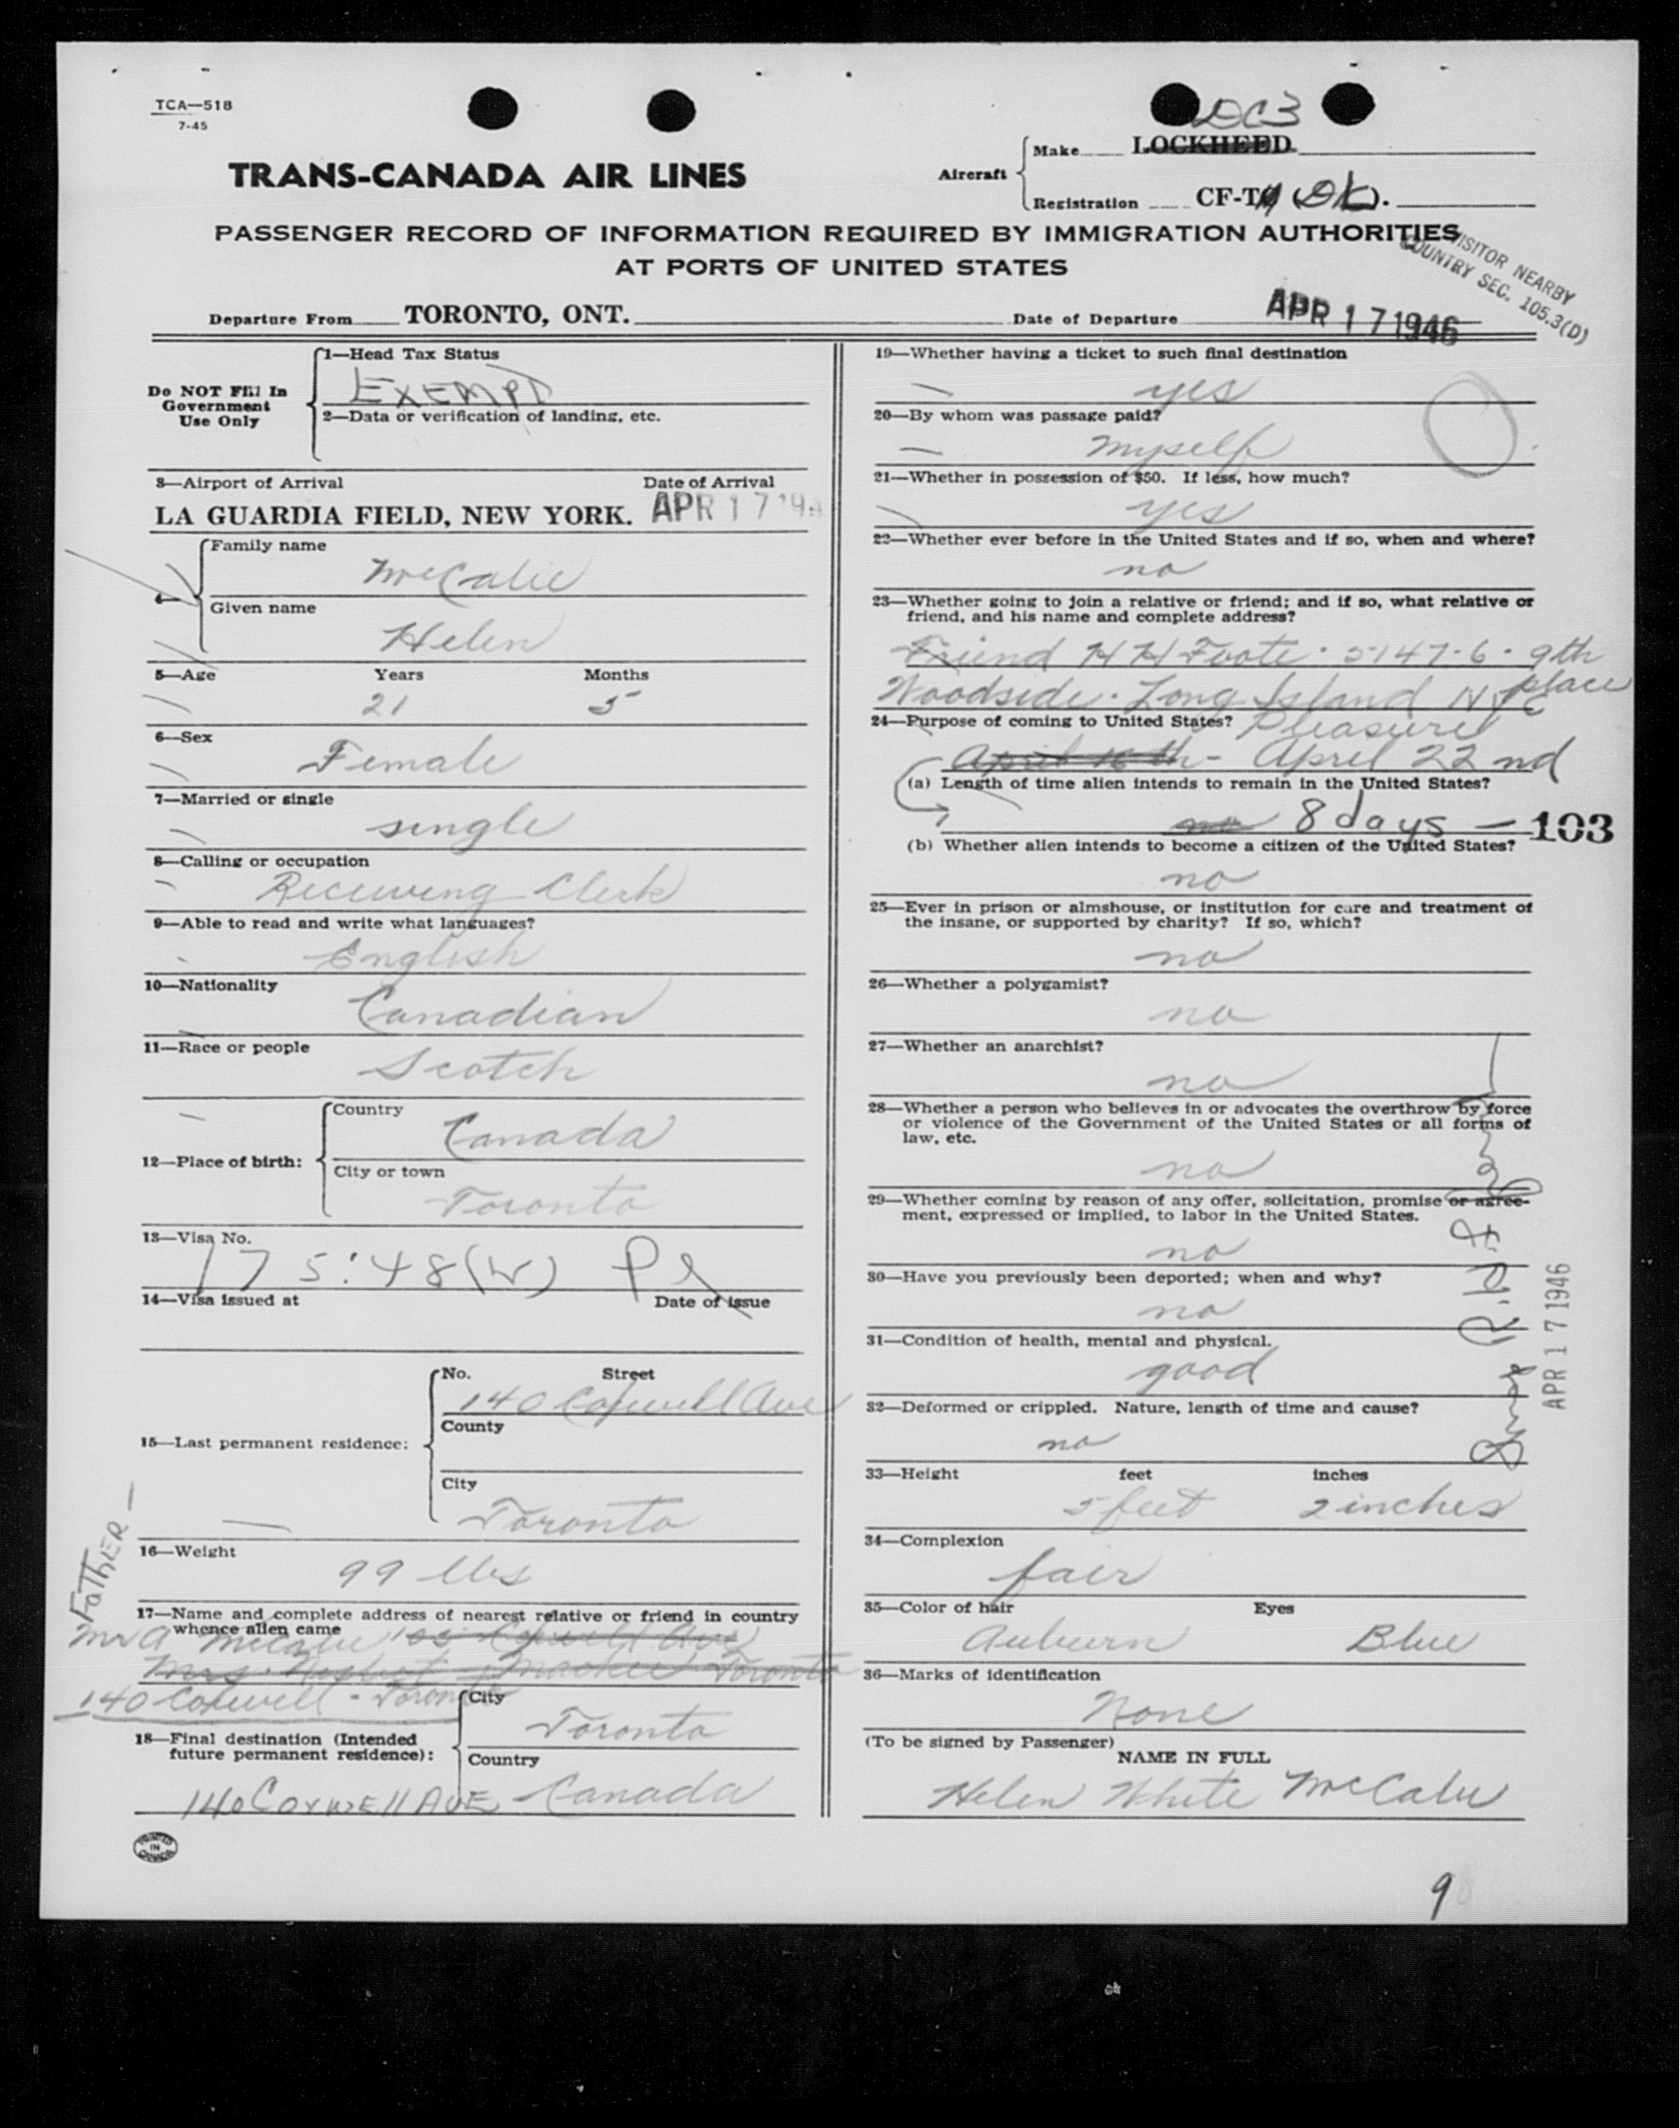 TCA—518
7-45
TRANS-CANADA AIR LINES
Aircraft
Make DC3
LOCKHEED
Registration CF-T (DK).
PASSENGER RECORD OF INFORMATION REQUIRED BY IMMIGRATION AUTHORITIES
AT PORTS OF UNITED STATES
VISITOR NEARBY
COUNTRY SEC. 105.3(D)
Departure From TORONTO, ONT.
Date of Departure APR 17 1946
Do NOT Fill In
Government
Use Only
1—Head Tax Status
EXEMPT
2—Data or verification of landing, etc.
3—Airport of Arrival Date of Arrival
LA GUARDIA FIELD, NEW YORK. APR 17 194
4—
Family name
McCabe
Given name
Helen
5—Age Years Months
21 5
6—Sex
Female
7—Married or single
single
8—Calling or occupation
Receiving Clerk
9—Able to read and write what languages?
English
10—Nationality
Canadian
11—Race or people
Scotch
12—Place of birth:
Country
Canada
City or town
Toronto
13—Visa No.
175:48(W)
14—Visa issued at Date of issue
15—Last permanent residence:
No. Street
140 Coxwell Ave
County
City
Toronto
16—Weight
99 lbs
FATHER —
17—Name and complete address of nearest relative or friend in country
whence alien came
Mr A McCabe Coxwell Ave
Mrs. Mackie Toronto
140 Coxwell - Toronto
18—Final destination (Intended
future permanent residence):
City
Toronto
Country
140 COXWEll AVE Canada
PRINTED
IN
CANADA
19—Whether having a ticket to such final destination
yes
20—By whom was passage paid?
myself
21—Whether in possession of $50. If less, how much?
yes
22—Whether ever before in the United States and if so, when and where?
no
23—Whether going to join a relative or friend; and if so, what relative or
friend, and his name and complete address?
Friend H H Foote. 5147-6. 9th
place
Woodside. Long Island NYC
24—Purpose of coming to United States? Pleasure
April 16th - April 22nd
(a) Length of time alien intends to remain in the United States?
no 8 days — 103
(b) Whether alien intends to become a citizen of the United States?
no
25—Ever in prison or almshouse, or institution for care and treatment of
the insane, or supported by charity? If so, which?
no
26—Whether a polygamist?
no
27—Whether an anarchist?
no
28—Whether a person who believes in or advocates the overthrow by force
or violence of the Government of the United States or all forms of
law, etc.
no
29—Whether coming by reason of any offer, solicitation, promise or agree-
ment, expressed or implied, to labor in the United States.
no
30—Have you previously been deported; when and why?
no
31—Condition of health, mental and physical.
good
32—Deformed or crippled. Nature, length of time and cause?
no
APR 17 1946
33—Height feet inches
5 feet 2 inches
34—Complexion
fair
35—Color of hair Eyes
Auburn Blue
36—Marks of identification
None
(To be signed by Passenger)
NAME IN FULL
Helen White McCabe
9